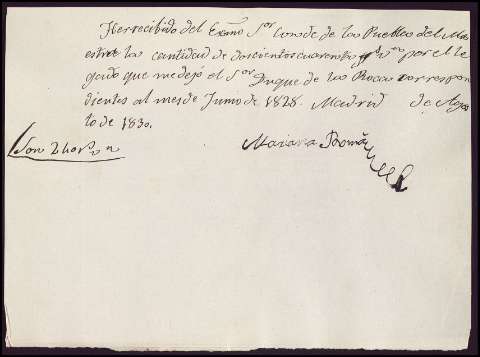 He recibido del Exmo Sor Conde de la Puebla del Ma
estre la cantidad de doscientos cuarenta rs vn por el le
gado que me dejo el Sor Duque de la Roca correspon
dientes al mes de Junio de 1828. Madrid de Agos
to de 1830.
Mariana Romá
Son 240 rs vn